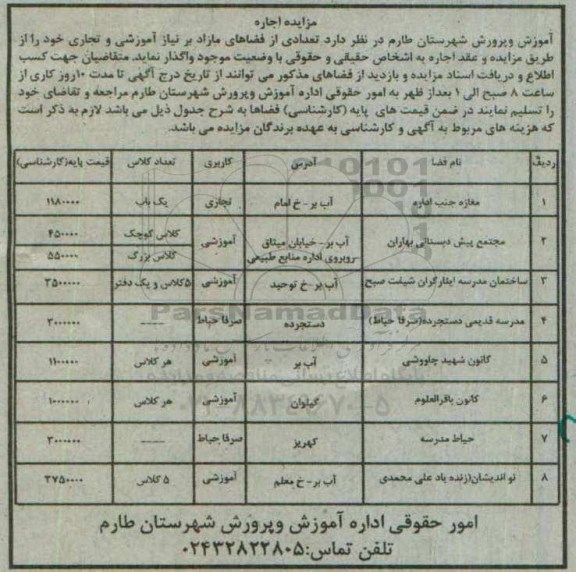 مزایده اجاره
آموزش وپرورش شهرستان طارم در نظر دارد تعدادی از فضاهای مازاد بر نیاز آموزشی و تجاری خود را از
طریق مزایده و عقد اجاره به اشخاص حقیقی و حقوقی با وضعیت موجود واگذار نماید. متقاضیان جهت کسب
اطلاع و دریافت اسناد مزایده و بازدید از فضاهای مذکور می توانند از تاریخ درج آگهی تا مدت ۱۰روز کاری از
ساعت ۸ صبح الی ۱ بعداز ظهر به امور حقوقی اداره آموزش وپرورش شهرستان طارم مراجعه و تقاضای خود
را تسلیم نمایند در ضمن قیمت های پایه (کارشناسی) فضاها به شرح جدول ذیل می باشد لازم به ذکر است
که هزینه های مربوط به آگهی و کارشناسی به عهده برندگان مزایده می باشد.
ردیف نام فضا آدرس کاربری تعداد کلاس قیمت پایه(کارشناسی)
۱ مغازه جنب اداره آب بر - خ امام تجاری یک باب ۱۱۸۰۰۰۰۰
۲ مجتمع پیش دبستانی بهاران آب بر- خیابان میثاق -روبروی اداره منابع طبیعی آموزشی کلاس کوچک ۴۵۰۰۰۰۰
کلاس بزرگ ۵۵۰۰۰۰۰
۳ ساختمان مدرسه ایثارگران شیفت صبح آب بر-خ توحید آموزشی ۵کلاس و یک دفتر ۳۵۰۰۰۰۰
۴ مدرسه قدیمی دستجرده(صرفا حیاط) دستجرده صرفا حیاط ---- ۳۰۰۰۰۰۰
۵ کانون شهید چاووشی آب بر آموزشی هر کلاس ۱۱۰۰۰۰۰
۶ کانون باقرالعلوم گیلوان آموزشی هر کلاس ۱۰۰۰۰۰۰
۷ حیاط مدرسه کهریز صرفا حیاط ---- ۳۰۰۰۰۰۰
۸ نو اندیشان(زنده یاد علی محمدی آب بر-خ معلم آموزشی ۵ کلاس ۳۷۵۰۰۰۰
امور حقوقی اداره آموزش وپرورش شهرستان طارم
تلفن تماس:۰۲۴۳۲۸۲۲۸۰۵
ParsNamadData